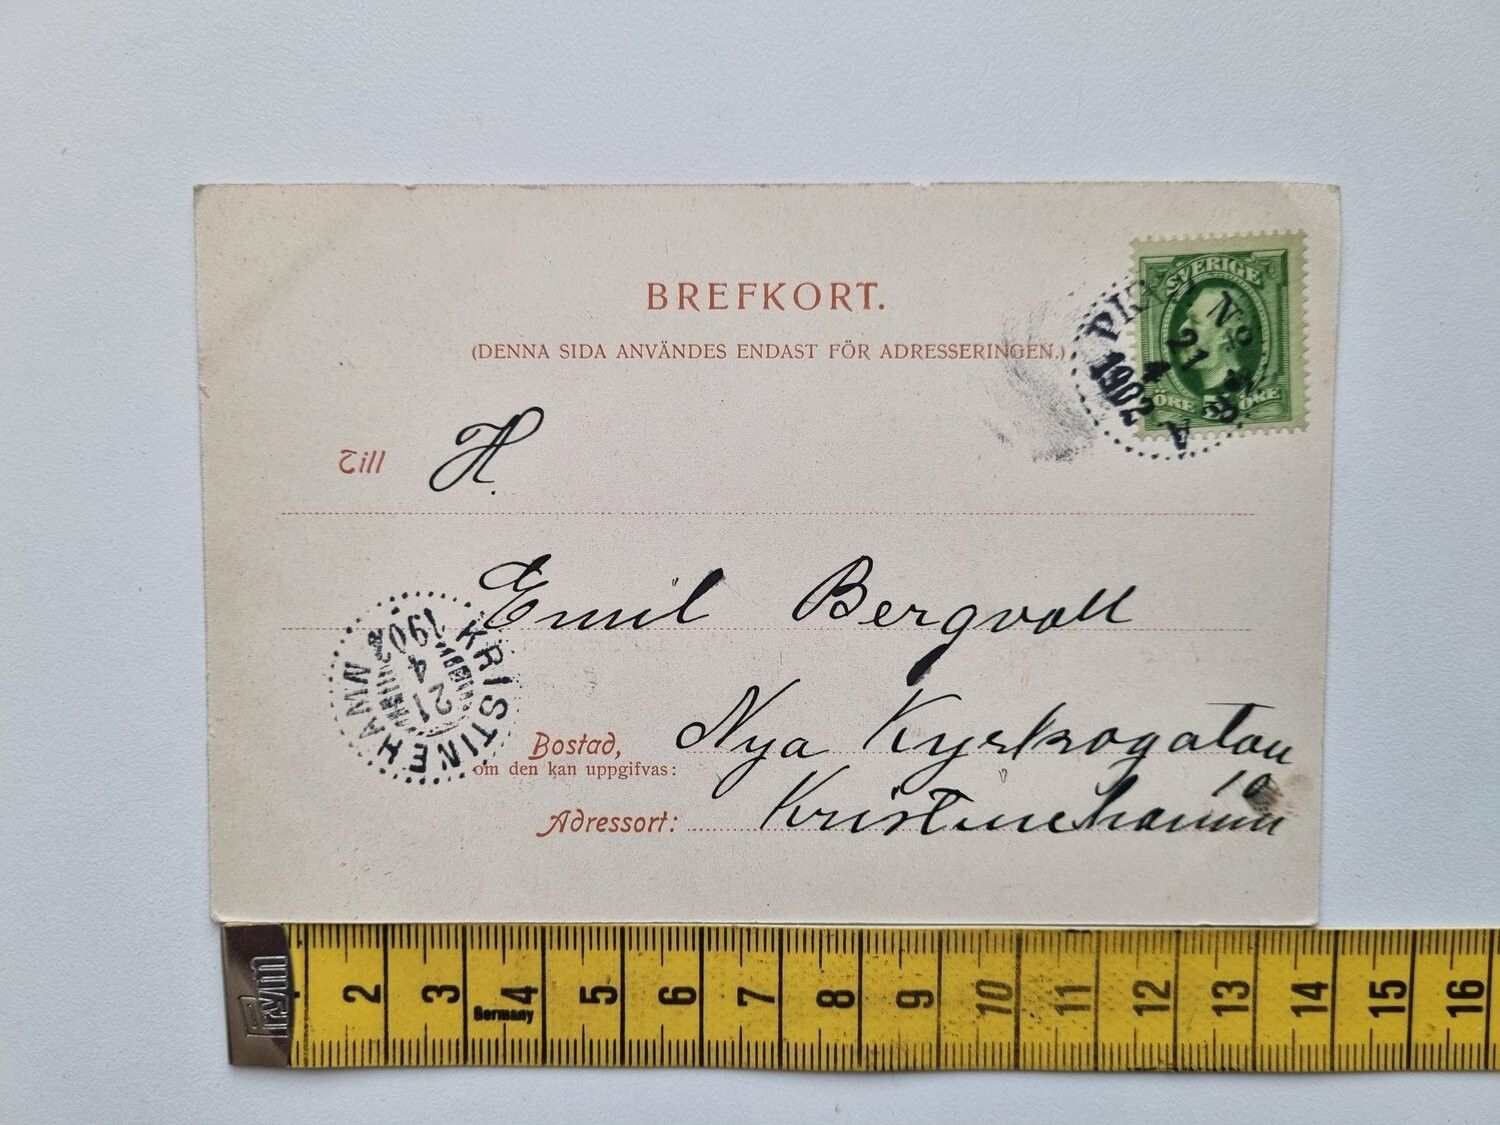 BREFKORT.
(DENNA SIDA ANVÄNDES ENDAST FÖR ADRESSERINGEN.)
SVERIGE
5 ÖRE ÖRE
21
4
1902
A
Till H.
Emil Bergvall
KRISTINEHAMN
1902
4
21
Bostad, Nya Kyrkogatan
om den kan uppgifvas:
10
Adressort: Kristinehamn
2 3 4 5 6 7 8 9 10 11 12 13 14 15 16
Germany